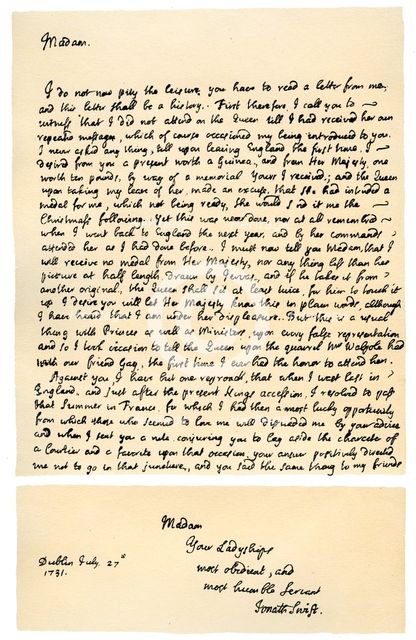 Madam.
I do not now pity the leisure you have to read a letter from me;
and this letter shall be a history. First therefore, I call you to
witness that I did not attend on the Queen till I had received her own
repeated messages, which of course occasioned my being introduced to you.
I never asked any thing, till upon leaving England the first time, I
desired from you a present worth a Guinea, and from Her Majesty, one
worth ten pounds, by way of a memorial. Yours I received; and the Queen
upon taking my leave of her, made an excuse, that she had intended a
medal for me, which not being ready, She would send it me the
Christmass following. Yet this was never done, nor at all remembred
when I went back to England the next year, and by her commands
attended her as I had done before. I must now tell you Madam, that I
will receive no medal from Her Majesty, nor any thing less than her
picture at half length, drawn by Jervas, and if he takes it from
another original, the Queen shall sit at least twice, for him to touch it
up. I desire you will let Her Majesty know this in plain words, although
I have heard that I am under her displeasure. But this is a usual
thing with Princes as well as Ministers, upon every false representation
and so I took occasion to tell the Queen upon the quarrel Mr Walpole had
with our friend Gay, the first time I ever had the honor to attend her.
Against you I have but one reproach, that when I was last in
England, and just after the present Kings accession, I resolved to pass
that Summer in France, for which I had then a most lucky opportunity
from which those who seemed to love me well disuaded me by your advice
and when I sent you a note, conjuring you to lay aside the character of
a Courtier and a favorite upon that occasion, your answer positively directed
me not to go in that juncture, and you said the same thing to my friends
Madam
Your Ladyships
most obedient, and
most humble Servant
Jonath Swift.
Dublin July. 27th
1731.